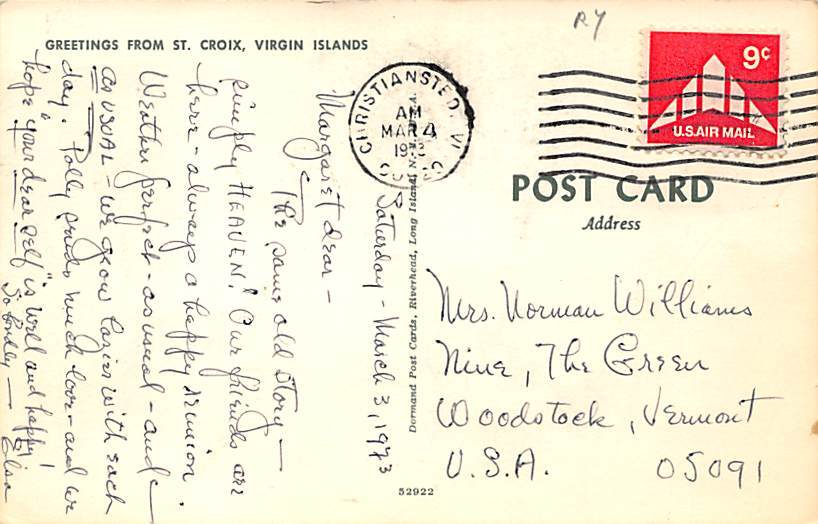 R4
GREETINGS FROM ST. CROIX, VIRGIN ISLANDS
CHRISTIANSTED, VI
AM
MAR 4
9¢
U.S. AIR MAIL
POST CARD
Address
Saturday - March 3, 1973
Margaret dear -
The same old story -
simply HEAVEN! Our friends are
here - always a happy reunion.
Weather perfect - as usual - and -
AS USUAL - we grow lazier with each
day. Polly sends much love - and we
hope "your dear self" is well and happy!
So fondly - Elsa
Dormand Post Cards, Riverhead, Long Island,
52922
Mrs. Norman Williams
Nine, The Green
Woodstock, Vermont
U.S.A. 05091